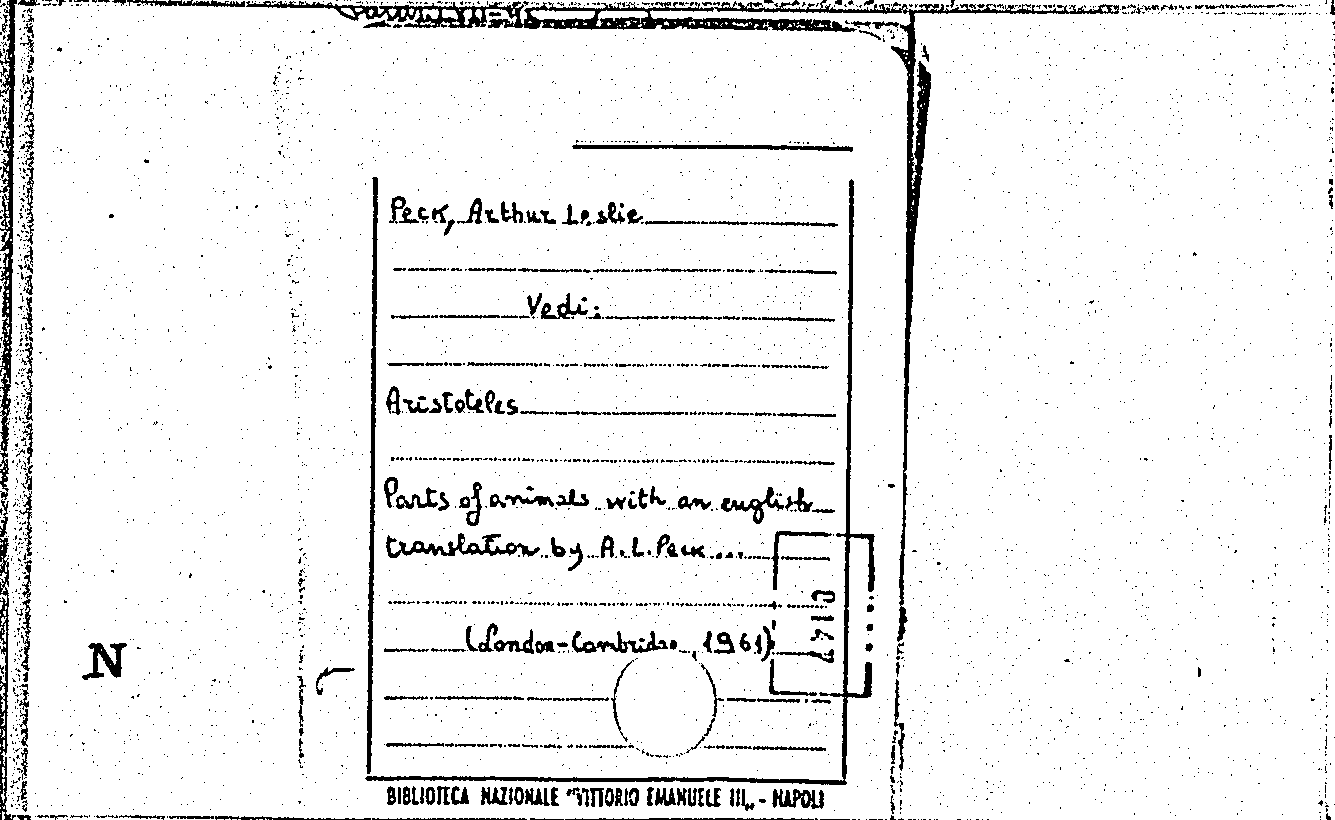 Peck, Arthur Leslie
Vedi:
Aristoteles
Parts of animals with an english
translation by A.L. Peck...
(London-Cambridge, 1961)
N
BIBLIOTECA NAZIONALE "VITTORIO EMANUELE III„ - NAPOLI